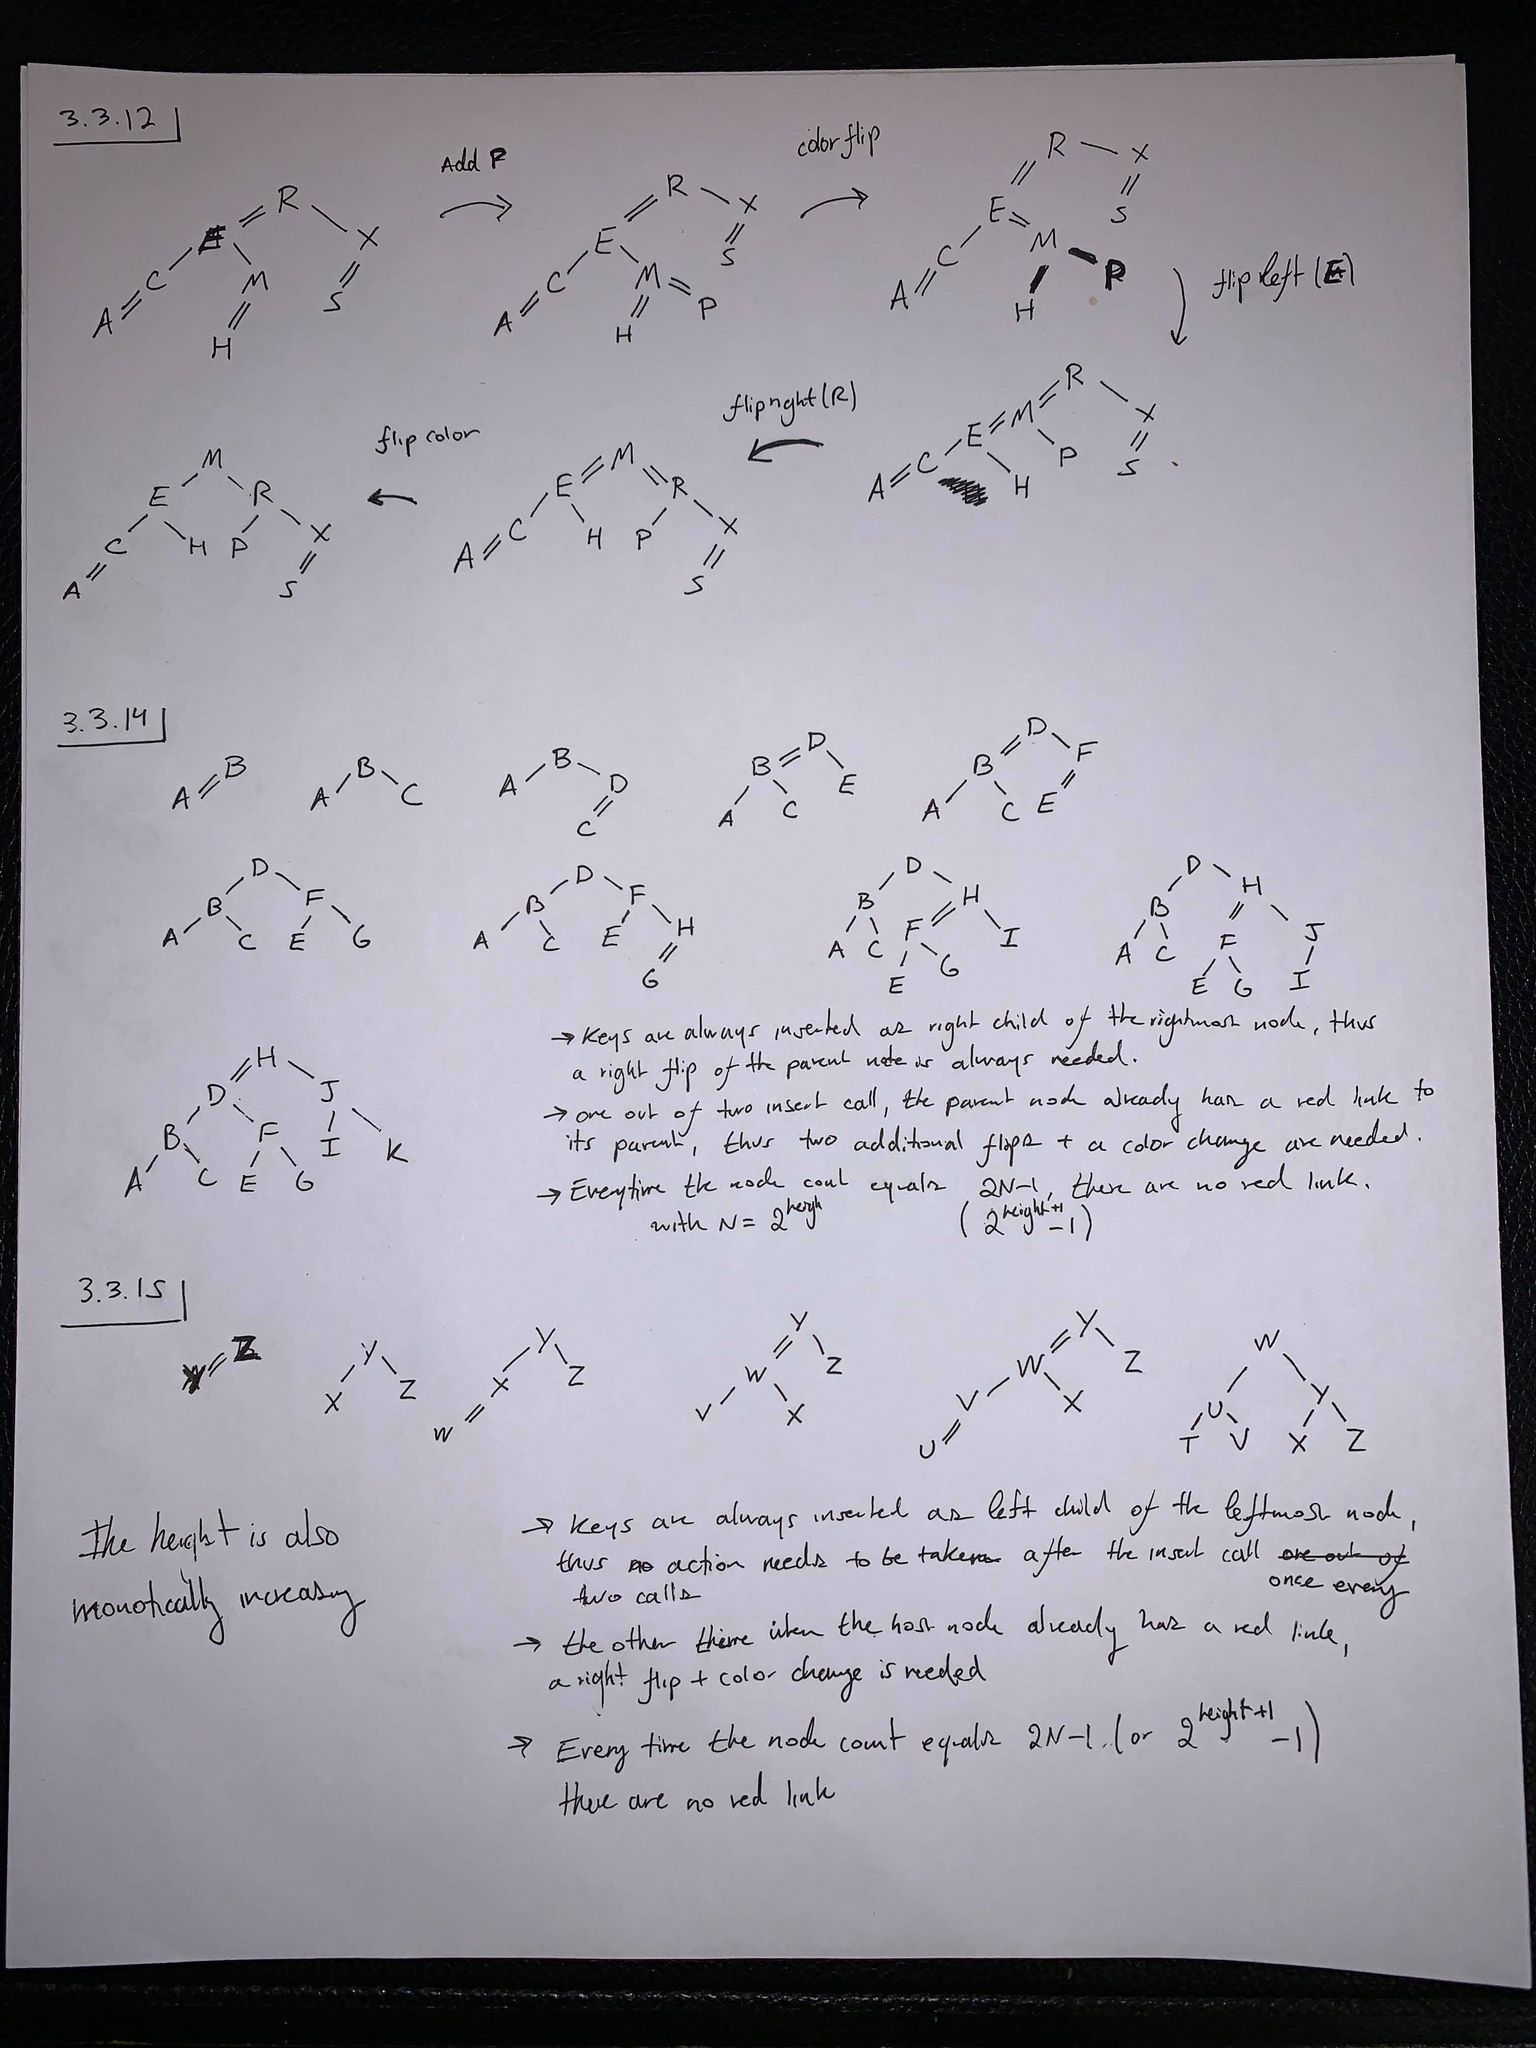 3.3.12
Add P
color flip
R
E
X
C
M
A
S
H
R
E
X
C
M
S
A
H
P
R
X
E
S
C
M
A
H
P
flip left (E)
R
M
X
E
C
P
S
A
H
flip right (R)
M
E
R
C
H
P
X
A
S
flip color
M
E
R
C
H
P
X
A
S
3.3.14
A B
B
A C
B
A D
C
D
B
A C E
D
B F
A C E
D
B F
A C E G
D
B F
A C E H
G
D
B H
A C F I
E G
D
B H
A C F J
E G I
H
D J
B F I K
A C E G
→ Keys are always inserted as right child of the rightmost node, thus
a right flip of the parent note is always needed.
→ one out of two insert call, the parent node already has a red link to
its parent, thus two additional flips + a color change are needed.
→ Everytime the node count equals 2N-1, there are no red link.
with N = 2^heigh (2^height+1 - 1)
3.3.15
Y Z
Y
X Z
Y
X Z
W
Y
W Z
V X
Y
W Z
V X
U
W
U Y
T V X Z
The height is also
monotically increasing
→ Keys are always inserted as left child of the leftmost node,
thus no action needs to be taken after the insert call one out of
once every
two calls
→ the other time when the host node already has a red link,
a right flip + color change is needed
→ Every time the node count equals 2N-1 (or 2^height+1 - 1)
there are no red link